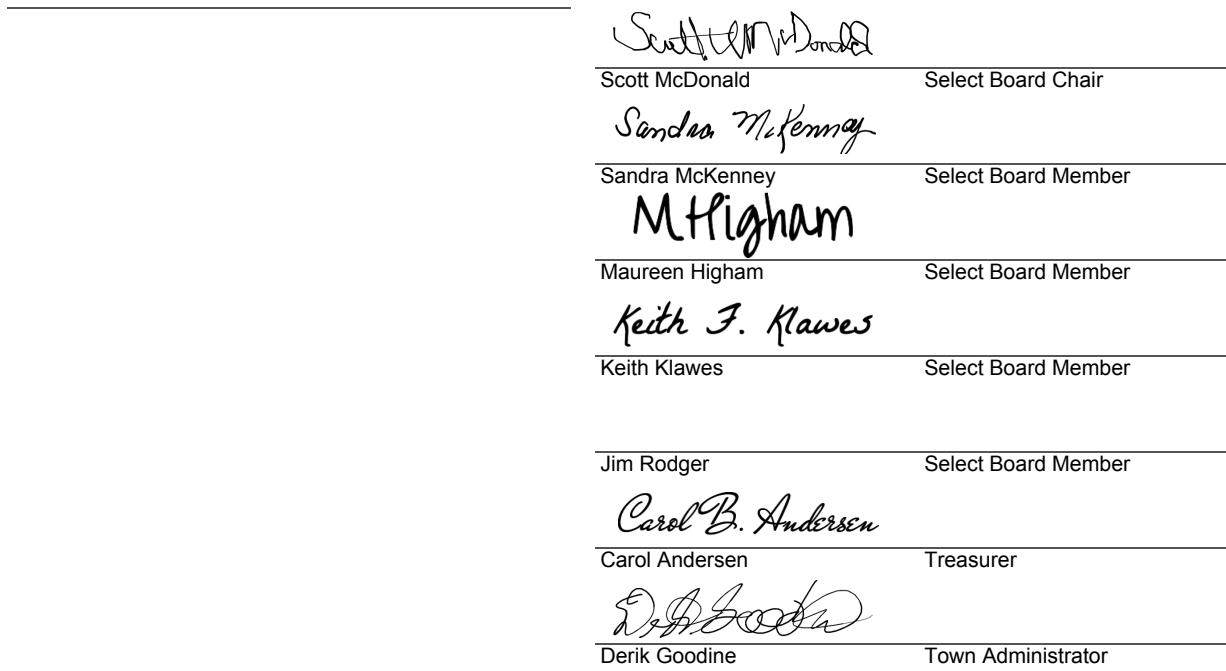 Scott W McDonald
Scott McDonald Select Board Chair
Sandra McKenney
Sandra McKenney Select Board Member
M Higham
Maureen Higham Select Board Member
Keith F. Klawes
Keith Klawes Select Board Member
Jim Rodger Select Board Member
Carol B. Andersen
Carol Andersen Treasurer
Derik Goodine Town Administrator